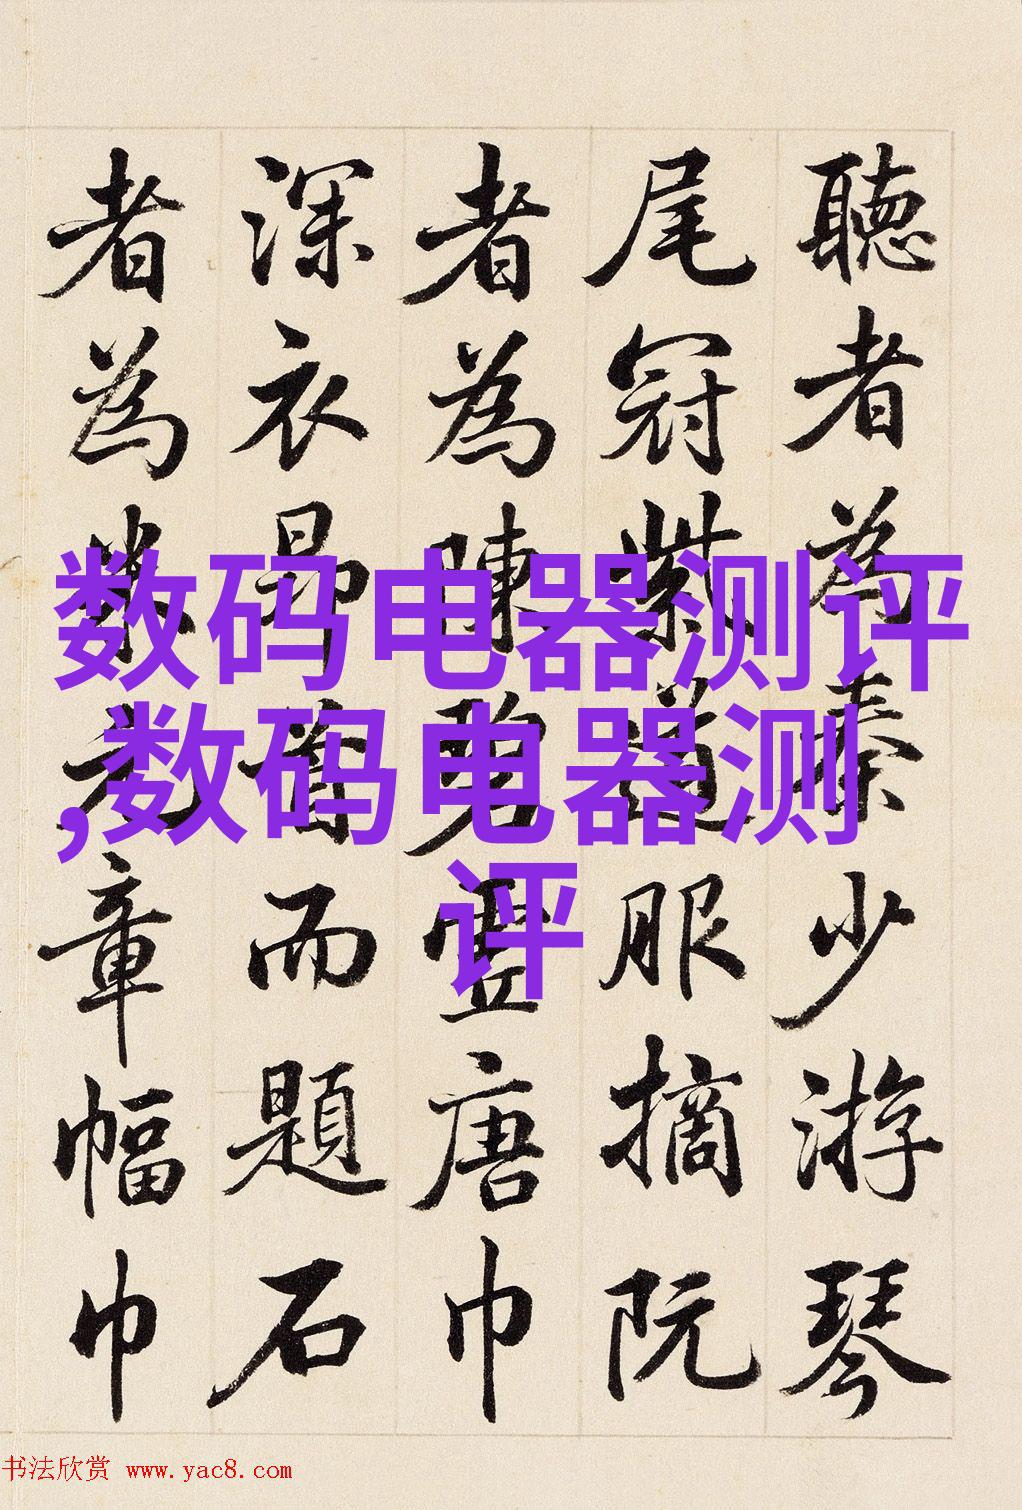 聽者為秦少游琴
尾冠紫道服摘阮
者為陳碧虛唐巾
深衣昂首而題石
者為米元章幅巾
数码电器测评
,数码电器测
评
书法欣赏 www.yac8.com